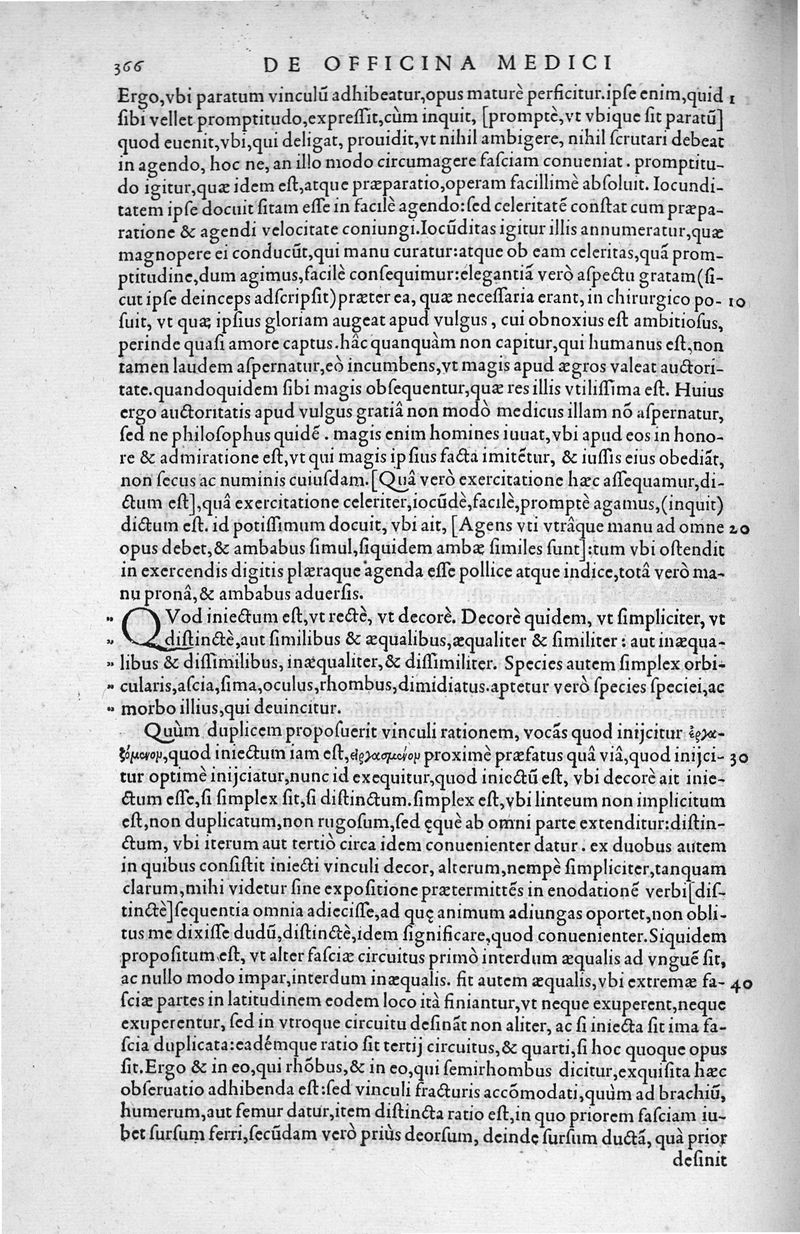 366 DE OFFICINA MEDICI
Ergo,vbi paratum vinculũ adhibeatur,opus maturè perficitur.ipſe enim,quid 1
ſibi vellet promptitudo,expreſſit,cùm inquit, [promptè,vt vbique ſit paratũ]
quod euenit,vbi,qui deligat, prouidit,vt nihil ambigere, nihil ſcrutari debeat
in agendo, hoc ne, an illo modo circumagere faſciam conueniat . promptitu-
do igitur,quæ idem eſt,atque præparatio,operam facillimè abſoluit. Iocundi-
tatem ipſe docuit ſitam eſſe in facilè agendo:ſed celeritatẽ conſtat cum præpa-
ratione & agendi velocitate coniungi.Iocũditas igitur illis annumeratur,quæ
magnopere ei conducũt,qui manu curatur:atque ob eam celeritas,quã prom-
ptitudine,dum agimus,facilè conſequimur:elegantiã verò aſpectu gratam(ſi-
cut ipſe deinceps adſcripſit)præter ea, quæ neceſſaria erant, in chirurgico po- 10
ſuit, vt quæ ipſius gloriam augeat apud vulgus , cui obnoxius eſt ambitioſus,
perinde quaſi amore captus.hâc quanquàm non capitur,qui humanus eſt,non
tamen laudem aſpernatur,eò incumbens,vt magis apud ægros valeat auctori-
tate.quandoquidem ſibi magis obſequentur,quæ res illis vtiliſſima eſt. Huius
ergo auctoritatis apud vulgus gratiâ non modò medicus illam nõ aſpernatur,
ſed ne philoſophus quidẽ . magis enim homines iuuat,vbi apud eos in hono-
re & admiratione eſt,vt qui magis ipſius facta imitẽtur, & iuſſis eius obediãt,
non ſecus ac numinis cuiuſdam.[Quâ verò exercitatione hæc aſſequamur,di-
ctum eſt],quâ exercitatione celeriter,iocũdè,facilè,promptè agamus,(inquit)
dictum eſt. id potiſſimum docuit, vbi ait, [Agens vti vtrâque manu ad omne 20
opus debet,& ambabus ſimul,ſiquidem ambæ ſimiles ſunt]:tum vbi oſtendit
in exercendis digitis plæraque agenda eſſe pollice atque indice,totâ verò ma-
nu pronâ,& ambabus aduerſis.
„ QVod iniectum eſt,vt rectè, vt decorè. Decorè quidem, vt ſimpliciter, vt
„ diſtinctè,aut ſimilibus & æqualibus,æqualiter & ſimiliter : aut inæqua-
„ libus & diſſimilibus, inæqualiter,& diſſimiliter. Species autem ſimplex orbi-
„ cularis,aſcia,ſima,oculus,rhombus,dimidiatus.aptetur verò ſpecies ſpeciei,ac
„ morbo illius,qui deuincitur.
Quùm duplicem propoſuerit vinculi rationem, vocãs quod inijcitur ἐργα-
ζόμενον,quod iniectum iam eſt,εἰργασμένον proximè præfatus quâ viâ,quod inijci- 30
tur optimè inijciatur,nunc id exequitur,quod iniectũ eſt, vbi decorè ait inie-
ctum eſſe,ſi ſimplex ſit,ſi diſtinctum.ſimplex eſt,vbi linteum non implicitum
eſt,non duplicatum,non rugoſum,ſed ęquè ab omni parte extenditur:diſtin-
ctum, vbi iterum aut tertiò circa idem conuenienter datur . ex duobus autem
in quibus conſiſtit iniecti vinculi decor, alterum,nempè ſimpliciter,tanquam
clarum,mihi videtur ſine expoſitione prætermittẽs in enodationẽ verbi[diſ-
tinctè]ſequentia omnia adieciſſe,ad quę animum adiungas oportet,non obli-
tus me dixiſſe dudũ,diſtinctè,idem ſignificare,quod conuenienter.Siquidem
propoſitum eſt, vt alter faſciæ circuitus primò interdum æqualis ad vnguẽ ſit,
ac nullo modo impar,interdum inæqualis. fit autem æqualis,vbi extremæ fa- 40
ſciæ partes in latitudinem eodem loco ità finiantur,vt neque exuperent,neque
exuperentur, ſed in vtroque circuitu deſinãt non aliter, ac ſi iniecta ſit ima fa-
ſcia duplicata:eadẽmque ratio ſit tertij circuitus,& quarti,ſi hoc quoque opus
ſit.Ergo & in eo,qui rhõbus,& in eo,qui ſemirhombus dicitur,exquiſita hæc
obſeruatio adhibenda eſt:ſed vinculi fracturis accõmodati,quùm ad brachiũ,
humerum,aut femur datur,item diſtincta ratio eſt,in quo priorem faſciam iu-
bet ſurſum ferri,ſecũdam verò priùs deorſum, deinde ſurſum ductã, quà prior
deſinit